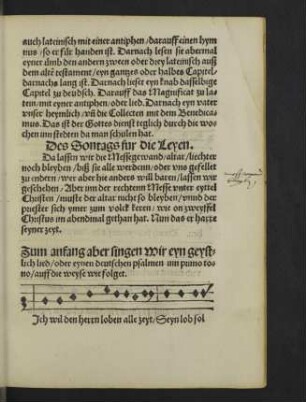 auch lateinisch mit einer antiphen / darauff einen hym
nus / so er fur handen ist. Darnach lesen sie abermal
eyner umb den andern zween oder drey lateinisch auß
dem alte testament / eyn gantzes oder halbes Capitel /
darnachs lang ist. Darnach lieset eyn knab dasselbige
Capitel zu deudsch. Darauff das Magnificat zu la=
tein / mit eyner antiphen / oder lied. Darnach eyn vater
unser heymlich / un die Collecten mit dem Benedica=
mus. Das ist der Gottis dienst teglich durch die wo=
chen ynn stedten da man schulen hat.
Des Sontags fur die Leyen.
Da lassen wir die Messegewand / altar / liechter
noch bleyben / biß sie alle werden / oder uns gefellet
zu endern / wer aber hie anders wil baren / lassen wir
geschehen / Aber ynn der rechten Messe unter eyttel
Christen / muste der altar nicht so bleyben / unnd der
priester sich ymer zum volck keren / wie on zweyffel
Christus im abendmal gethan hat. Nun das erharre
seyner zeyt.
Zum anfang aber singen wir eyn geyst=
lich lied / oder eynen deutschen psalmen inn primo to
no / auff die weyse wie folget.
Ich wil den herrn loben alle zeyt / Seyn lob sol